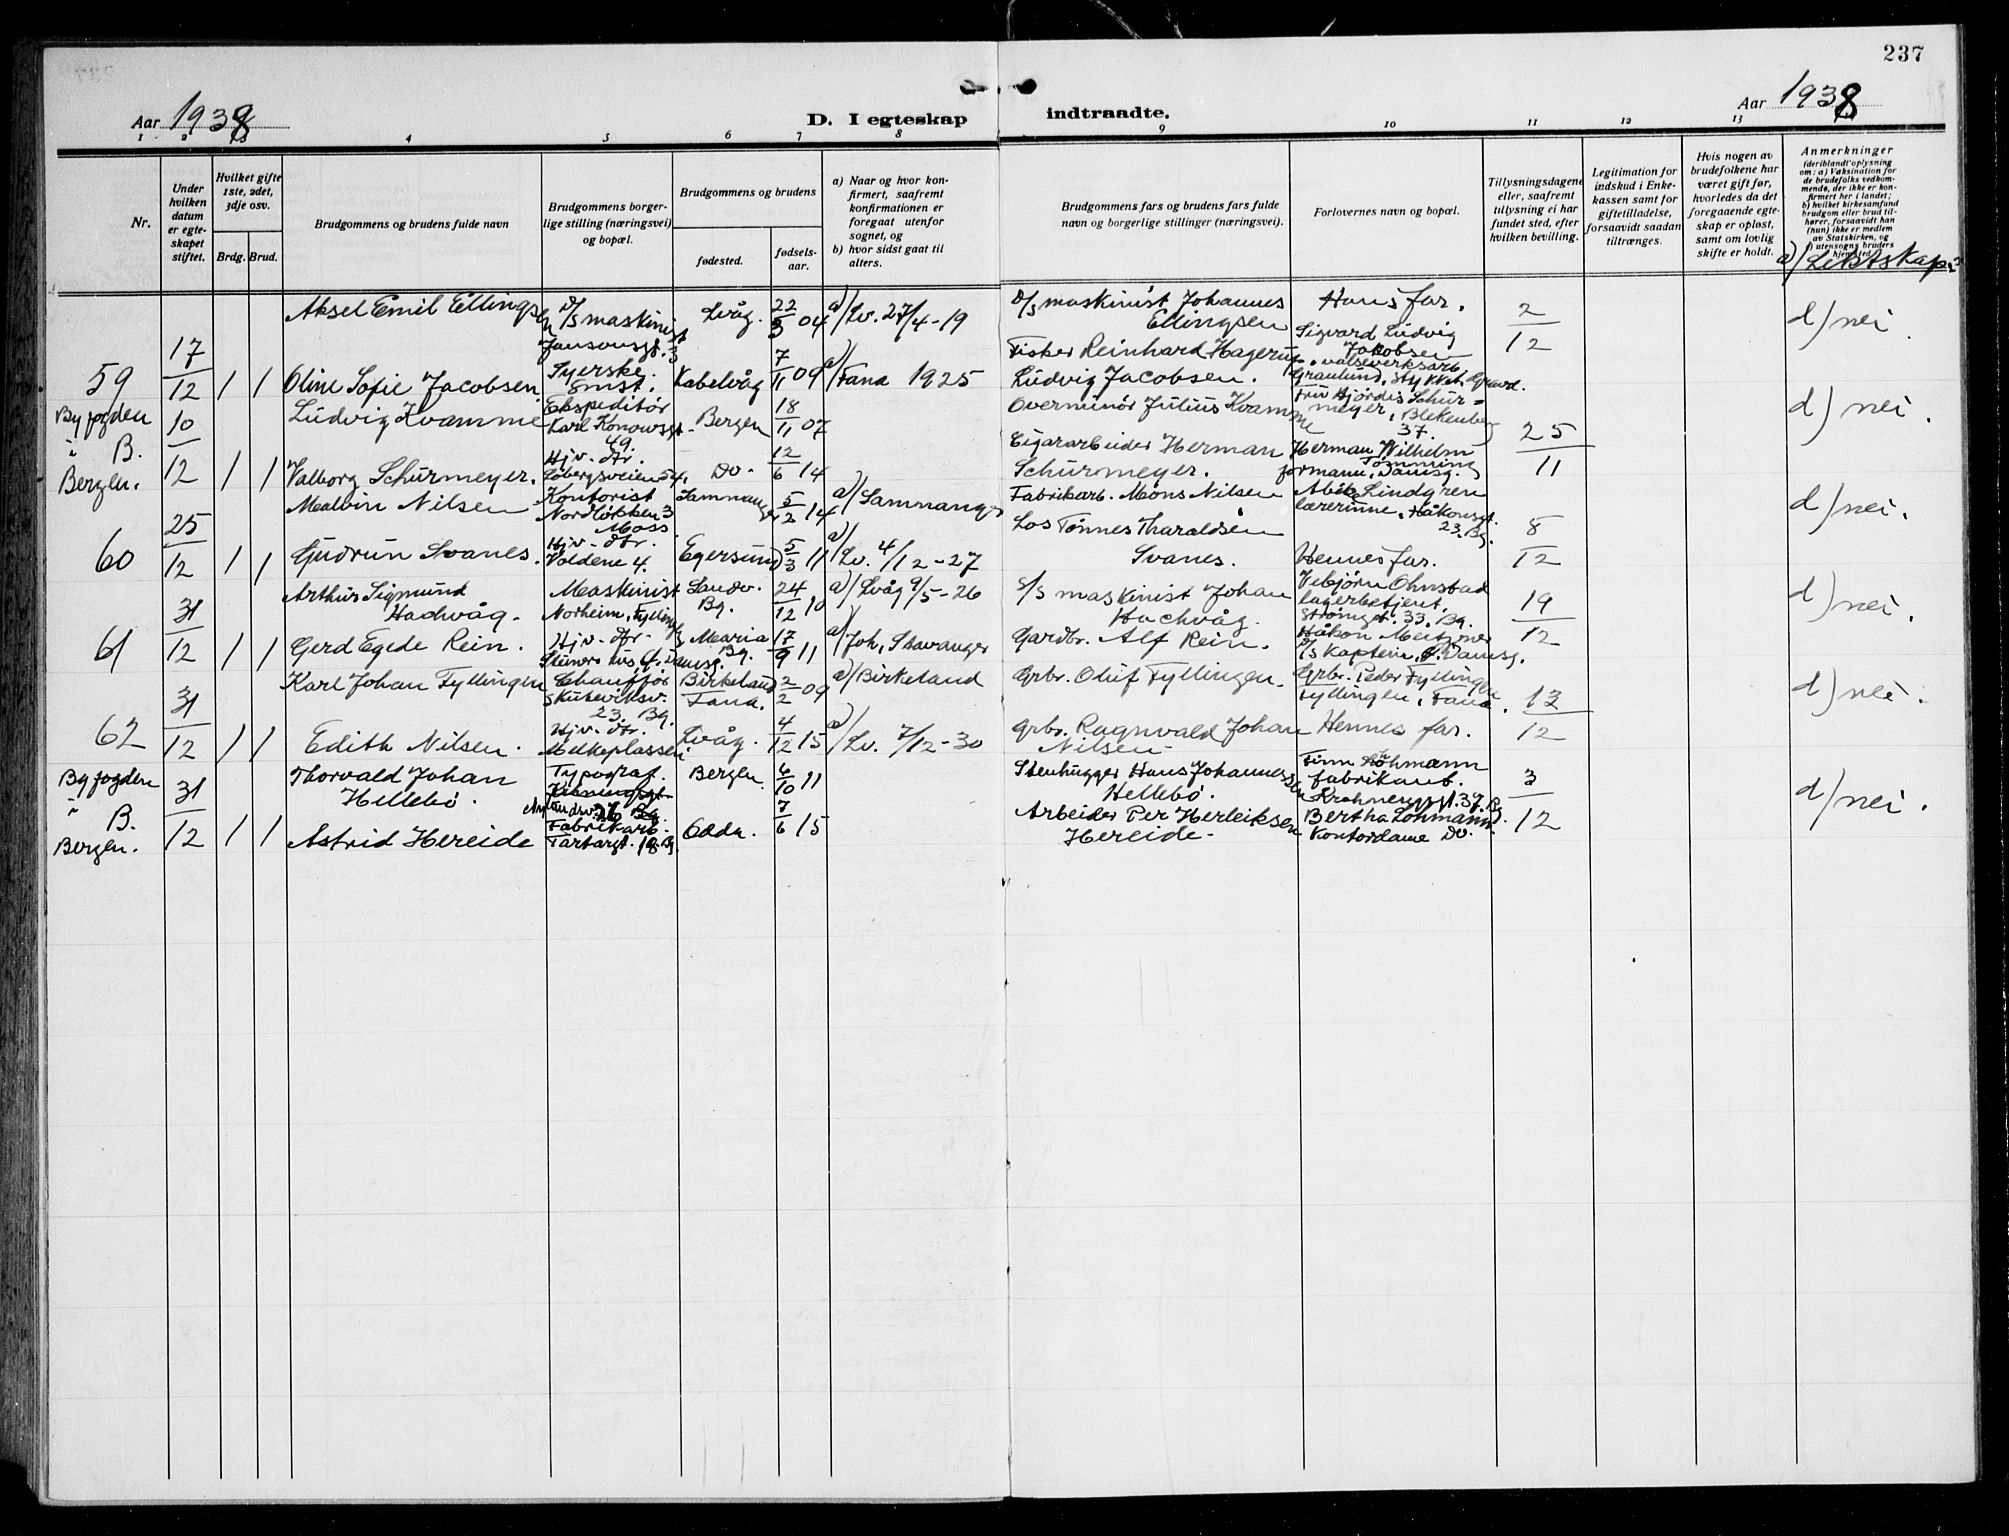 237
Aar 1938
D. I egteskap indtraadte.
Aar 1938
1 2 3 4 5 6 7 8 9 10 11 12 13
Nr.
Under hvilken datum er egteskapet stiftet.
Hvilket gifte 1ste, 2det, 3dje osv.
Brdg. Brud.
Brudgommens og brudens fulde navn
Brudgommens borgerlige stilling (næringsvei) og bopæl.
Brudgommens og brudens
fødested.
fødselsaar.
a) Naar og hvor konfirmert, saafremt konfirmationen er foregaat utenfor sognet, og
b) hvor sidst gaat til alters.
Brudgommens fars og brudens fars fulde navn og borgerlige stillinger (næringsvei).
Forlovernes navn og bopæl.
Tillysningsdagene eller, saafremt tillysning ei har fundet sted, efter hvilken bevilling.
Legitimation for indskud i Enkekassen samt for giftetilladelse, forsaavidt saadan tiltrænges.
Hvis nogen av brudefolkene har været gift før, hvorledes da det foregaaende egteskap er opløst, samt om lovlig skifte er holdt.
Anmerkninger
(deriblandt oplysning om: a) Vaksination for de brudefolks vedkommende, der ikke er konfirmert her i landet;
b) hvilket kirkesamfund brudgom eller brud tilhører, forsaavidt han (hun) ikke er medlem av Statskirken, og
c) utensogns bruders hjemsted.
Aksel Emil Ellingsen
D/S maskinist
Jansonsgt. 3
Lvåg.
22/3 04
a) Lv. 27/4-19
D/S maskinist Johannes Ellingsen
Hans far.
2/12
d) nei.
59
17/12 1 1
Oline Sofie Jacobsen
Syerske.
Kabelvåg
7/11 09
a) Fana 1925
Fisker Reinhard Hagerup Ludvig Jacobsen.
Sigvard Ludvig Jakobsen, valseverksarb.
Byfogden i B.
Bergen.
10/12 1 1
Ludvig Kvamme
Ekspeditør
Karl Konowsgt. 49.
Bergen
18/11 07
Overminør Julius Kvamme
Fru Hjørdis Schürmeyer, Blekenberg 37.
25/11
d) nei.
Valborg Schürmeyer.
Hjv. dtr.
Løbergsveien 54.
Do.
12/6 14
Cigararbeider Herman Schürmeyer.
Herman Wilhelm Tømming
formann, Damsg.
60
25/12 1 1
Malvin Nilsen
Kontorist
Nordløkken 3
Moss
Samnanger
5/2 14
a) Samnanger
Fabrikarb. Mons Nilsen
Lindgren
lærerinne, Håkonsgt. 23. Bg.
8/12
d) nei.
Gudrun Svanes.
Hjv. dtr.
Voldene 4.
Egersund
5/3 11
a) Lv. 4/12-27
Los Tønnes Tharaldsen Svanes.
Hennes far.
61
31/12 1 1
Arthur Sigmund Hachvåg.
Maskinist
Norheim, Fyllingd.
Sandv. Bg.
24/12 10
a) Lvåg 9/5-26
S/S maskinist Johan Hachvåg.
Vebjørn Ohnstad
lagerbetjent.
Strømgt. 33. Bg.
19/12
d) nei.
Gerd Egede Rein.
Hjv. dtr.
Maria Bg.
17/9 11
a) Joh, Stavanger
Gardbr. Alf Rein.
Håkon
D/S kaptein, Ø. Damsg.
62
31/12 1 1
Karl Johan Fyllingen
Chauffør
Skuteviksv. 23. Bg.
Birkeland Fana.
2/2 09
a) Birkeland
Grbr. Oluf Fyllingen.
Grbr. Peder Fyllingen
Fyllingen, Fana.
13/12
d) nei.
Edith Nilsen.
Hjv. dtr.
Melkeplassen
Lvåg.
4/12 15
a) Lv. 7/12-30
Grbr. Ragnvald Johan Nilsen
Hennes far.
Byfogden i B.
Bergen.
31/12 1 1
Thorvald Johan Hellebø.
Typograf.
Bergen.
6/10 11
Stenhugger Hans Johannessen Hellebø.
Finn Lohmann
fabrikarb.
Krohnengsgt. 39. Bg.
3/12
d) nei.
Astrid Hereide
Fabrikarb.
Tartargt. 18. Bg.
Odda.
7/6 15
Arbeider Per Herleiksen Hereide
Bertha Lohmann.
Kontordame Do.